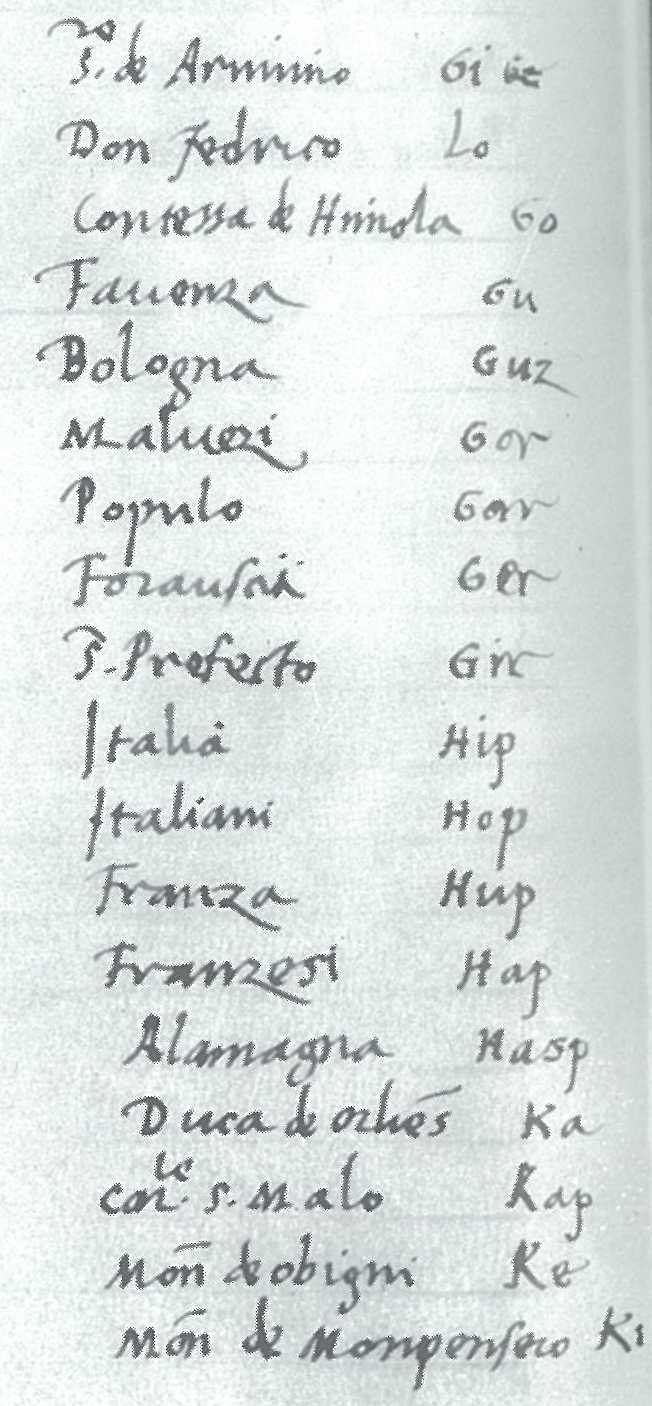 S.ro de Arimino Gi
Don Fedrico Lo
Contessa de Himola Go
Fauenza Gu
Bologna Guz
Maluezi Gor
Populo Gar
Forausciti Ger
S. Prefecto Gir
Italia Hip
Italiani Hop
Franza Hup
Franzesi Hap
Alamagna Hasp
Duca de orliēs Ka
car.le S. Malo Kap
Moñ de obigni Ke
Moñ de Monpensero Ki